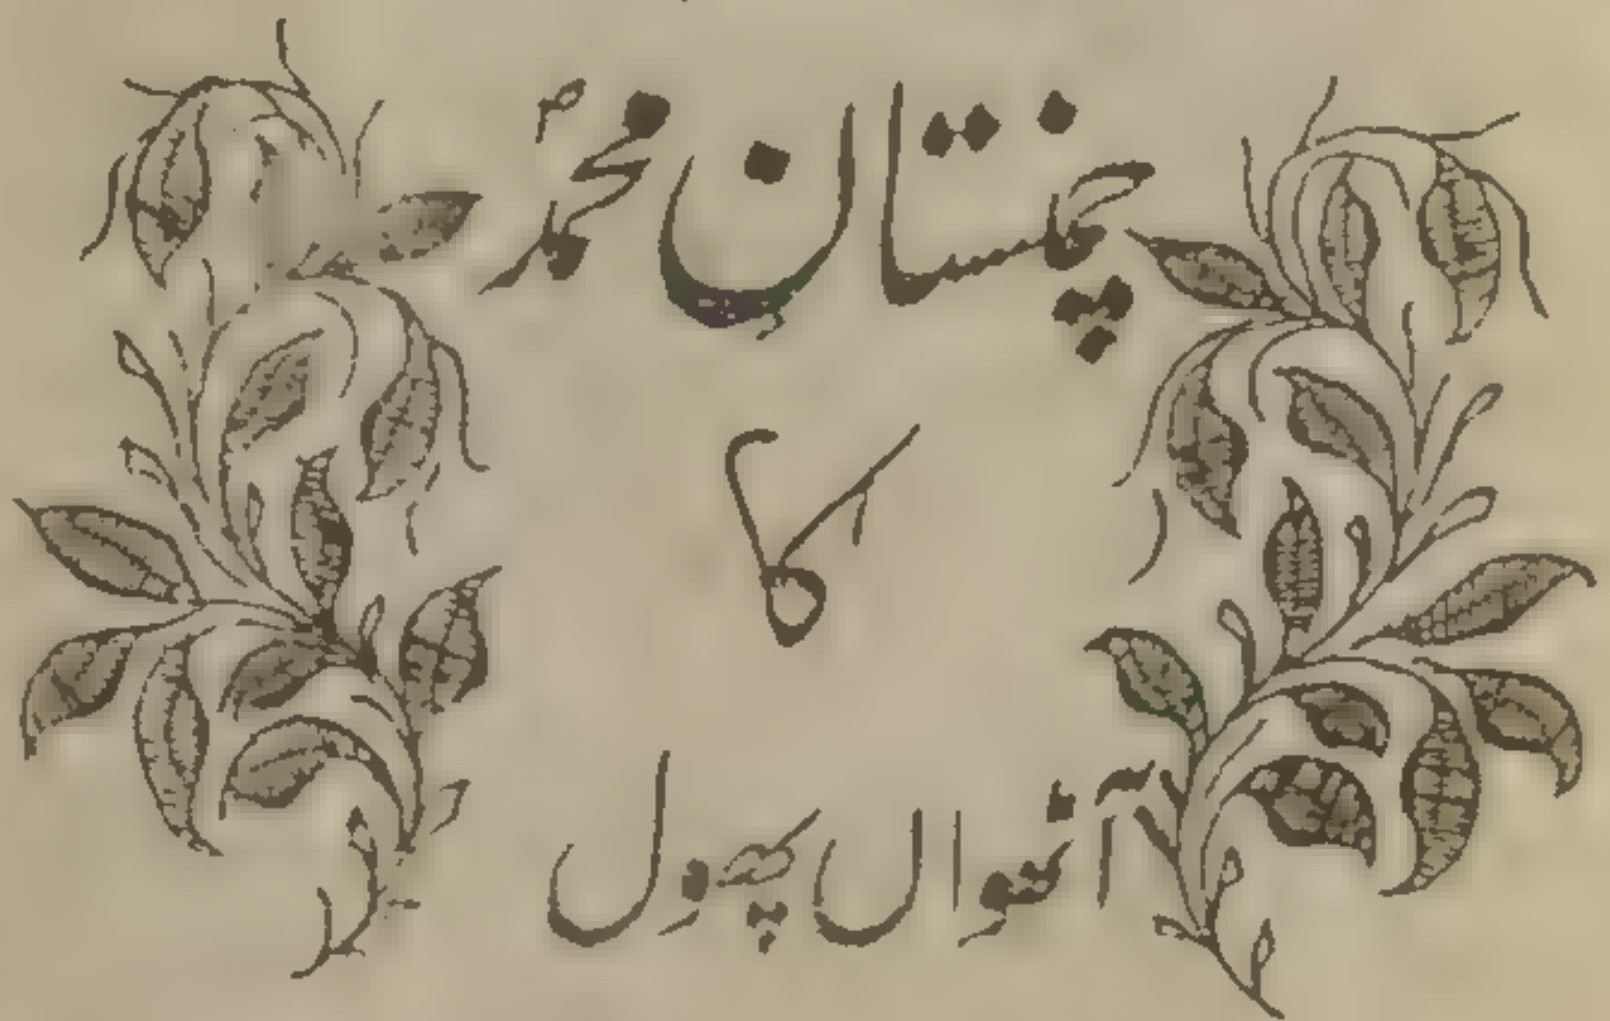 چمنستان محمدؐ
کا
آٹھواں پھول